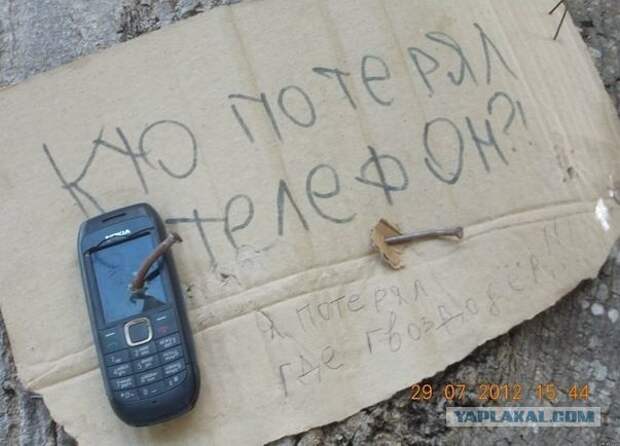 Кто потерял
телефон?!
NOKIA
я потерял
где гвоздодёр!!
29 07 2012 15 44
YAPLAKAL.COM